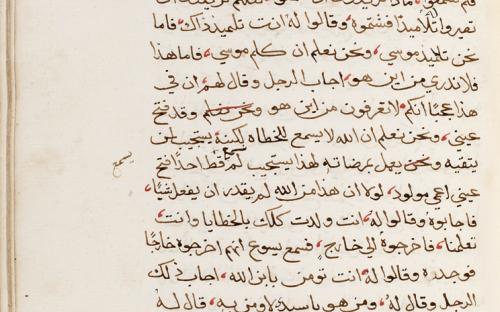 تصيروا له تلاميذا فشتموه وقالوا له انت تلميذ ذاك فاما
نحن تلاميذ موسى، ونحن نعلم ان الله كلم موسى، فاما هذا
فلا ندري من اين هو، اجاب الرجل وقال لهم، ان في
هذا عجبا انكم لا تعرفون من اين هو وقد فتح
عيني، ونحن نعلم ان الله لا يسمع للخطاه لكنه يستجيب لمن
يتقيه ويعمل بمرضاته لهذا يستجيب لم يسمع قط احدا فتح
يسمع
عيني اعمى مولود، لولا ان هذا من الله لم يقدر ان يفعل شيا،
فاجابوه وقالوا له، انت ولدت كلك بالخطايا وانت
تعلمنا، فاخرجوه الى خارج، فسمع يسوع انهم اخرجوه خارجا
فوجده وقالوا له انت تومن بابن الله، اجاب ذلك
الرجل وقال له، ومن هو ياسيد لاومن به، قال له